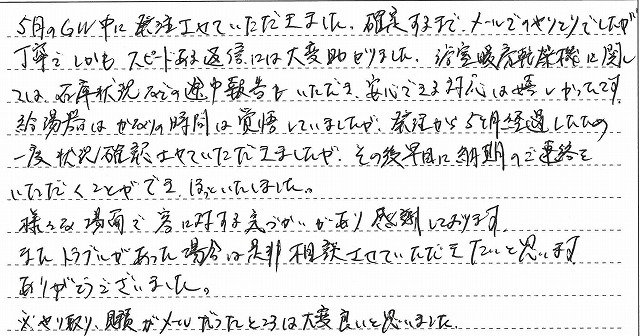 5月のGW中に発注させていただきました。確定するまで、メールでのやりとりでしたが
丁寧でしかもスピードある返信には大変助かりました。浴室暖房乾燥機に関し
ては、在庫状況などの途中報告をいただき、安心できる対応は嬉しかったです。
給湯器はかなりの時間は覚悟していましたが、発注から5ヶ月経過したため
一度状況確認させていただきましたが、その後早目に納期のご連絡を
いただくことができ、ほっといたしました。
様々な場面で客に対する気づかいがあり感謝しております。
またトラブルがあった場合は是非相談させていただきたいと思います
ありがとうございました。
※やり取り、見積がメールだったところは大変良いと思いました